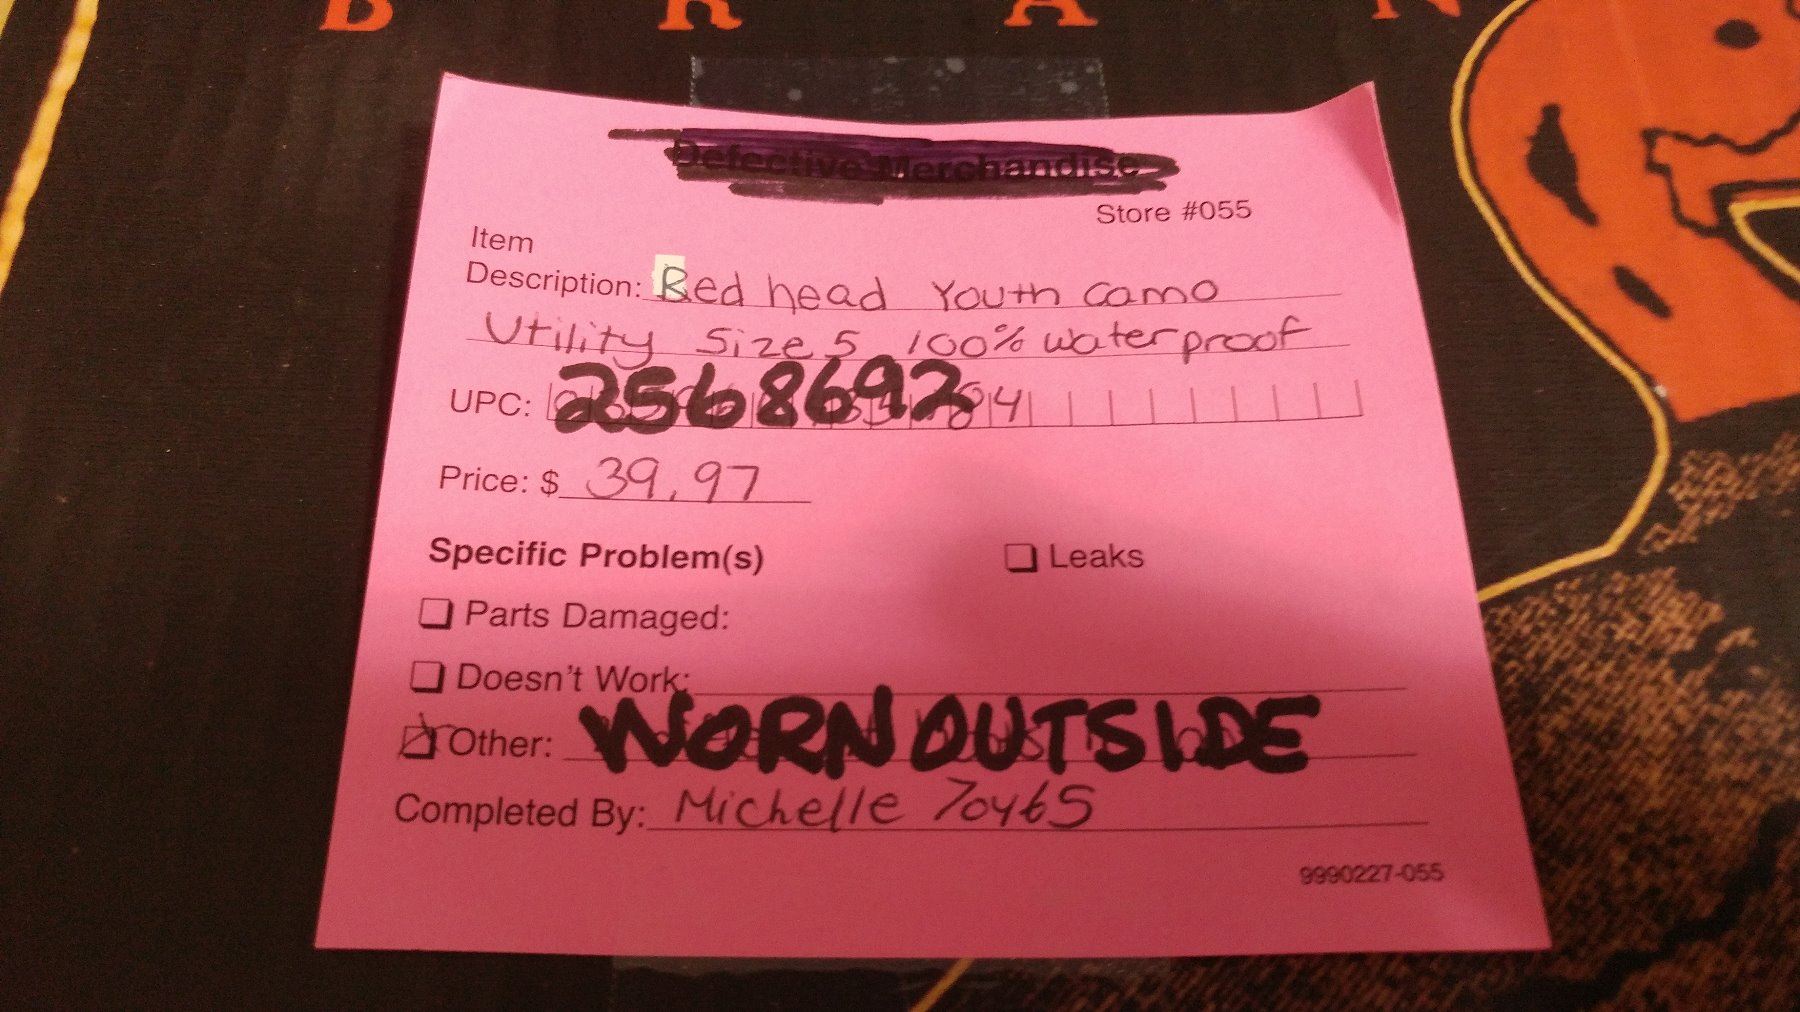 B R A N
Defective Merchandise
Store #055
Item
Description: Red head Youth Camo
Utility Size 5 100% waterproof
UPC: 2568692 84
Price: $ 39.97
Specific Problem(s)
Leaks
Parts Damaged:
Doesn't Work:
Other: WORN OUTSIDE
Completed By: Michelle 70465
9990227-055